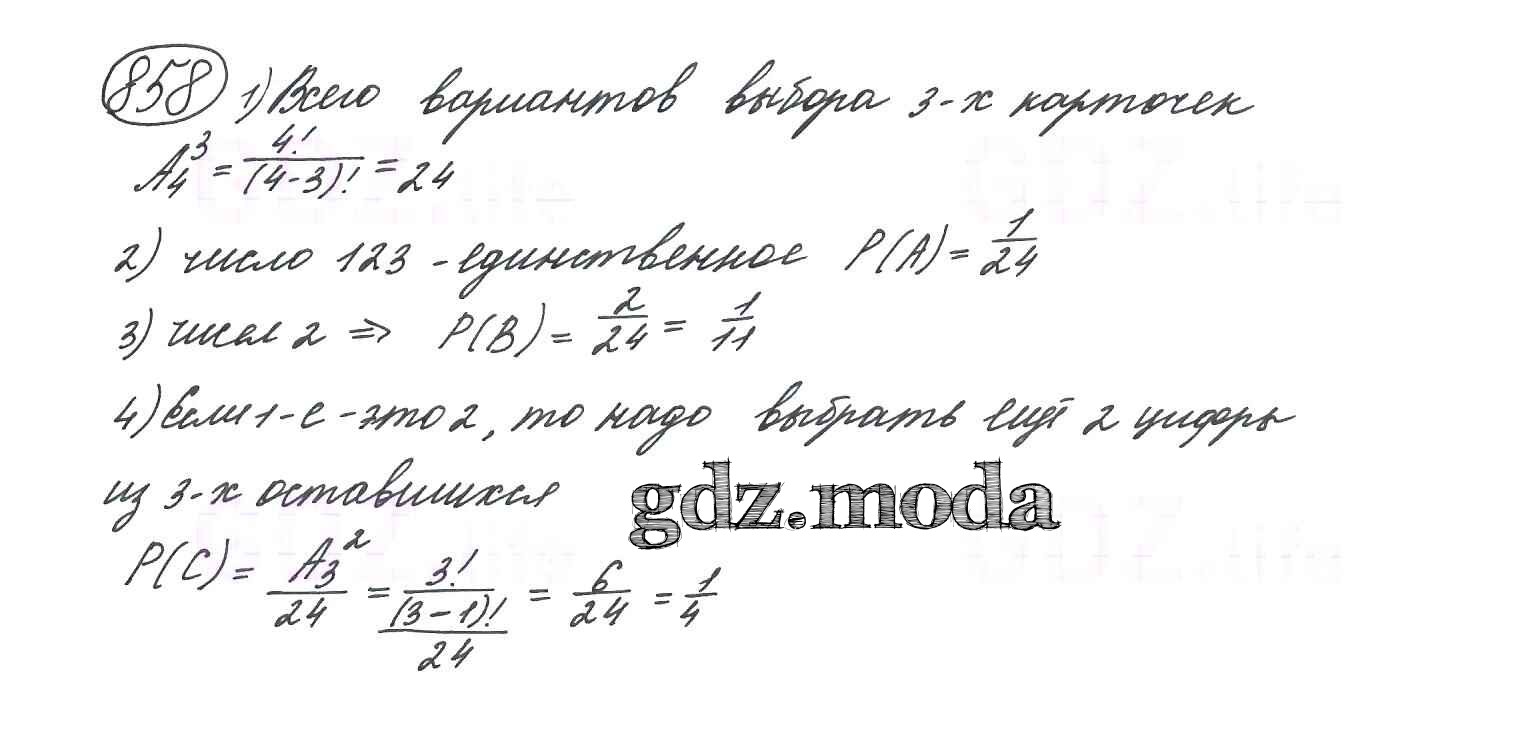 858 1) Всего вариантов выбора 3-х карточек
A₄³ = 4!/(4-3)! = 24
2) число 123 - единственное P(A) = 1/24
3) чисел 2 ⇒ P(B) = 2/24 = 1/11
4) Если 1-е - это 2, то надо выбрать ещё 2 цифры
из 3-х оставшихся
gdz.moda
P(C) = A₃²/24 = 3!/(3-1)!/24 = 6/24 = 1/4
GDZ.life
GDZ.life
GDZ.life
GDZ.life